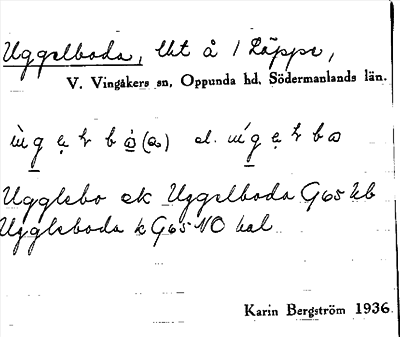 Uggelboda, lht å 1 Läppe,
V. Vingåkers sn, Oppunda hd, Södermanlands län.
Ugglebo ek Uggelboda G65 Kb
Uggleboda k G65 NO bal
Karin Bergström 1936